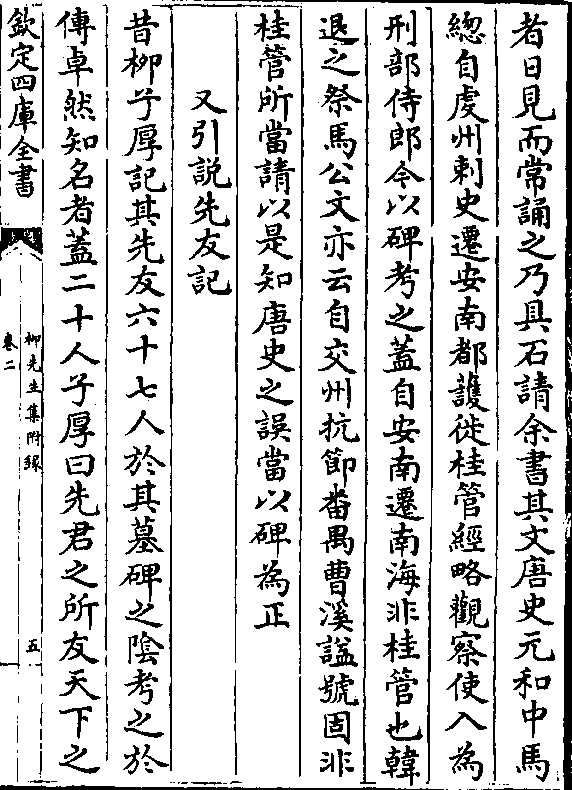 者日見而常誦之乃具石請余書其文唐史元和中馬
緫自虔州刺史遷安南都護徙桂管經略觀察使入為
刑部侍郎今以碑考之蓋自安南遷南海非桂管也韓
退之祭馬公文亦云自交州抗節番禺曹溪諡號固非
桂管所當請以是知唐史之誤當以碑為正
又引説先友記
昔柳子厚記其先友六十七人於其墓碑之陰考之於
傳卓然知名者蓋二十人子厚曰先君之所友天下之
欽定四庫全書
柳先生集附録
卷二
五